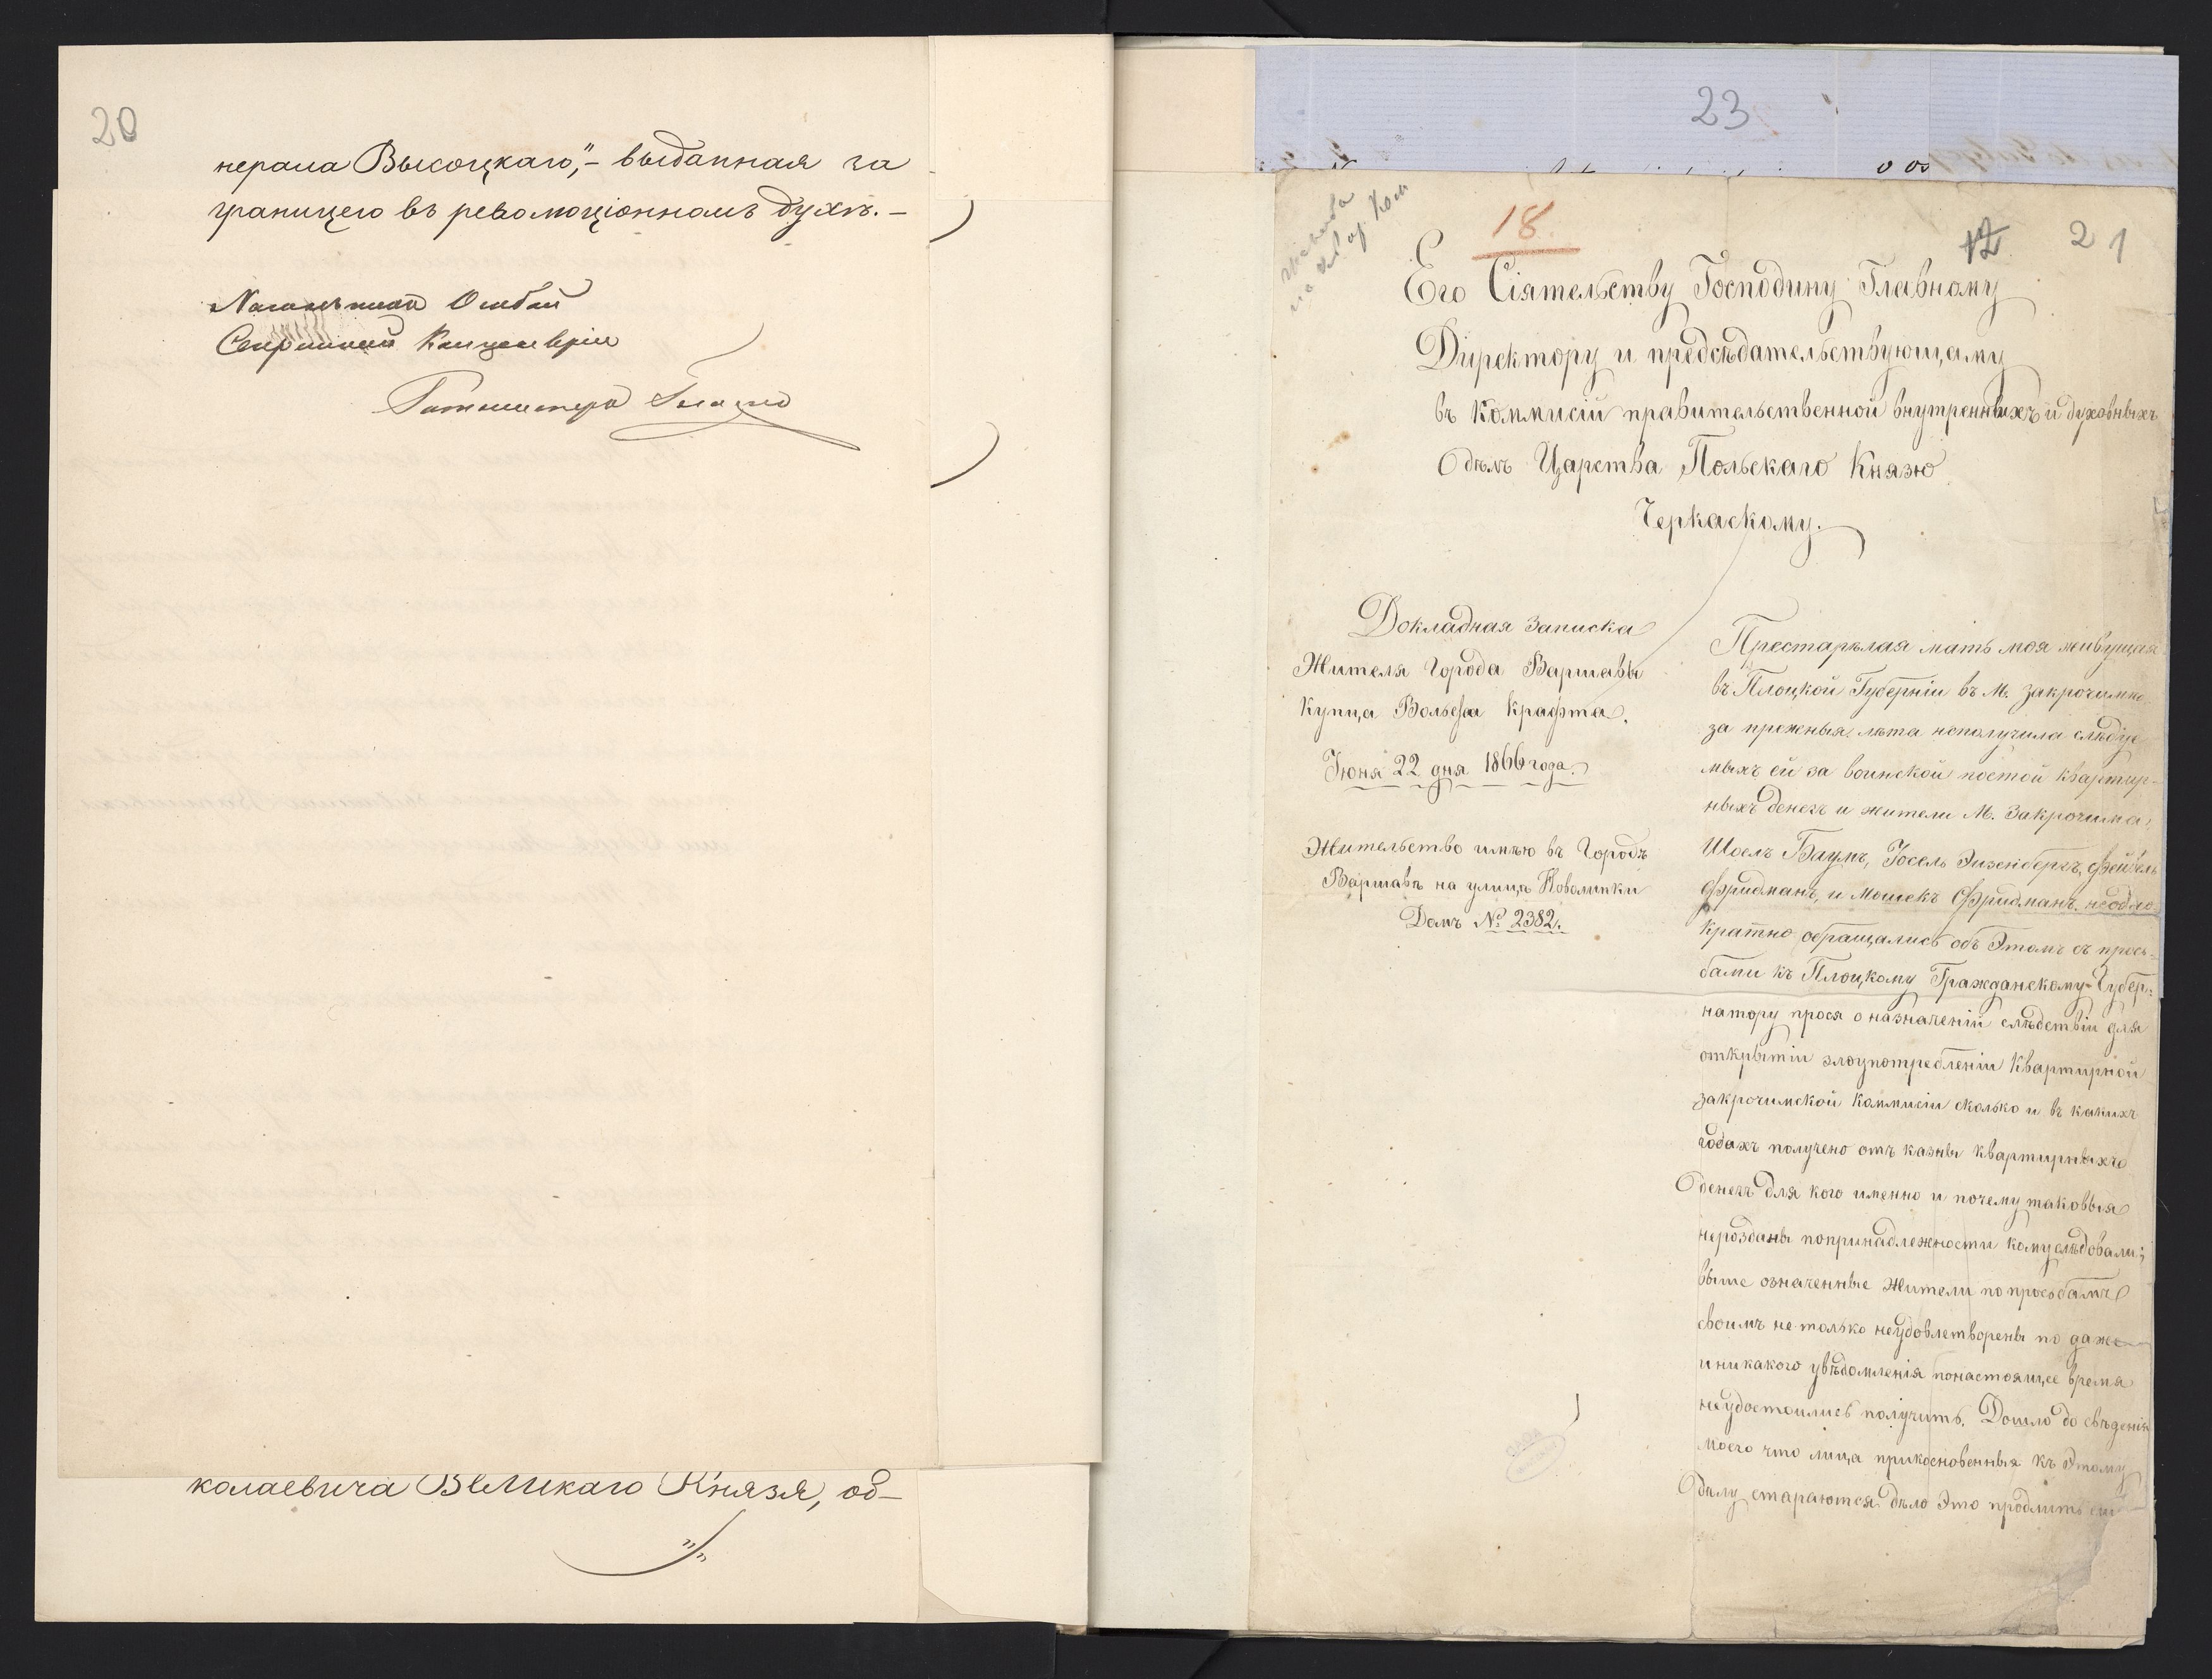 20
нерала Высоцкаго,"– выданная за
границею въ революціонномъ духѣ. –
Начальникъ Особой
Канцеляріи
Ротмистръ
колаевича Великаго Князя, об–
23
18.
12
21
Его Сіятельству Господину Главному
Директору и предсѣдательствующему
въ Коммисіи правительственной внутреннвихъ и духовнвихъ
Дѣлъ Царства Польскаго Князю
Черкаскому.
Докладная Записка
Жителя Города Варшавы
Купца Вольфа Крафта.
Іюня 22 дня 1866 года.
Жительство имѣю въ Городѣ
Варшавѣ на улицѣ Новолипки
Домъ № 2382.
Престарѣлая мать моя живущая
въ Плоцкой Губерніи въ М. Закрочимѣ
за прежныя лѣта неполучила слѣдуе
мыхъ ей за воинской постой квартир-
ныхъ денегъ и жители М. Закрочима,
Шоелъ Баумъ, Іосель Эизенбергъ, Фейвель
Фридманъ, и Мошекъ Фридманъ. неодно
кратно обращались объ Этомъ съ прось-
бами къ Плоцкому Гражданскому Губер-
натору прося о назначеніи слѣдствіи для
открытіи злоупотребленіи Квартирной
Закрочимской Коммисіи сколько и въ какихъ
годахъ получено отъ казны квартирныхъ
денегъ для кого именно и почему таковыя
нерозданы попринадлежности кому слѣдовали;
выше означенные Жители по прозьбамъ
своимъ не только неудовлетворены но даже
и никакого увѣдомленія понастоящее время
неудостоились получить. Дошло до свѣденія
моего что лица прикосновенныя къ Этому
дѣлу стараются дѣло Это продлить